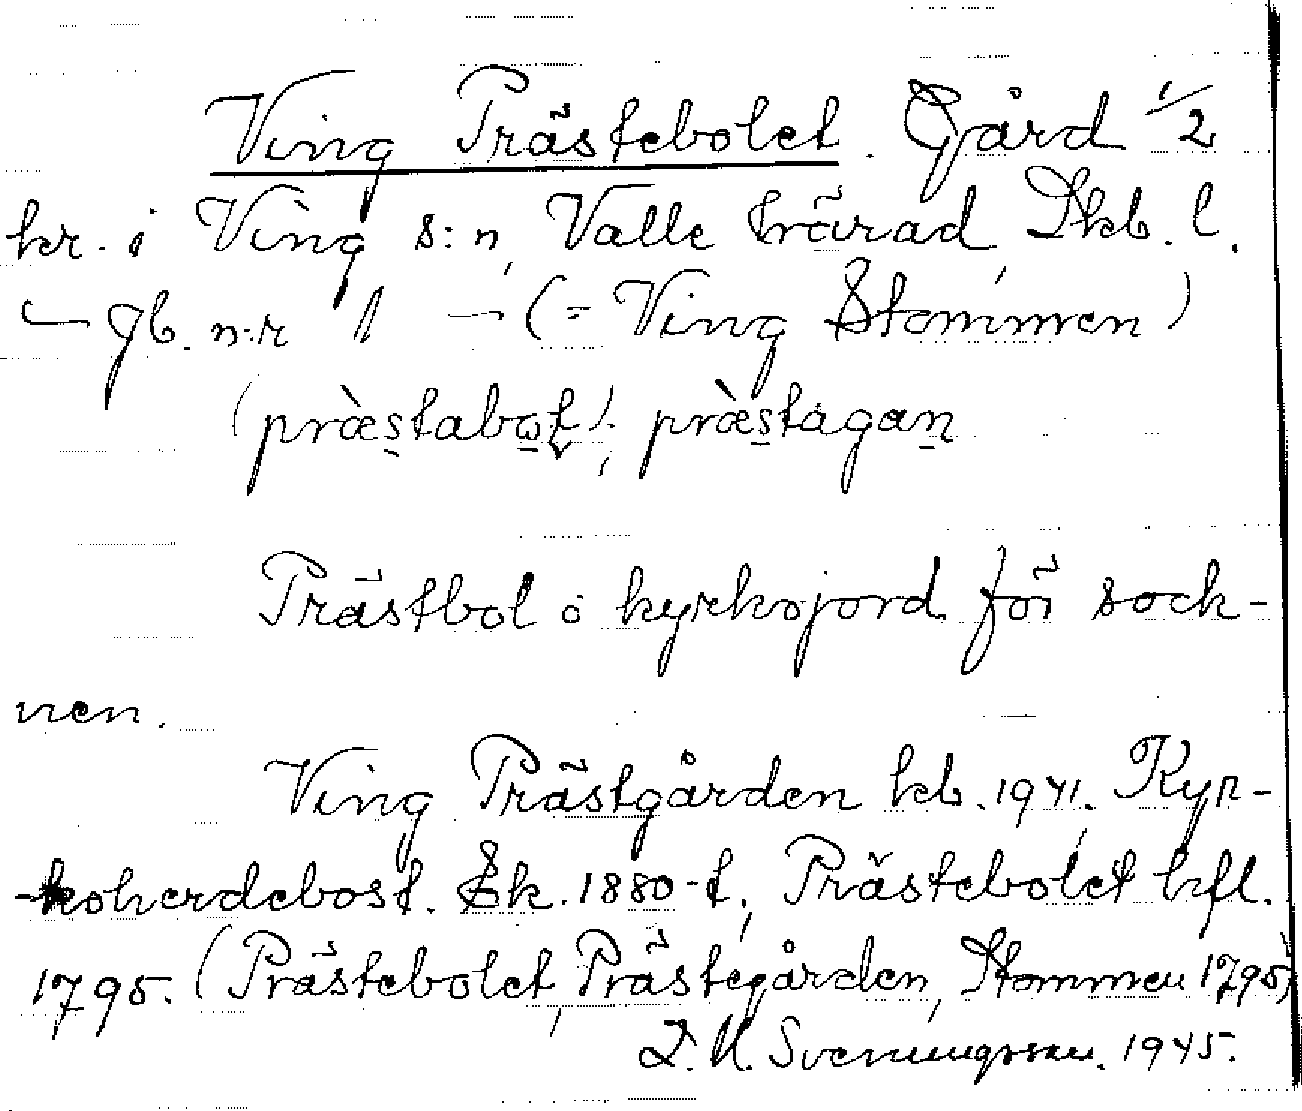 Ving Prästebolet. Gård 1/2
kr. i Ving s:n, Valle härad, Skb. l.
– Jb. n:r 1 – (= Ving Stommen)
(præ̀stabo̯t), præ̀stagan
Prästbol o kyrkojord för sock-
nen.
Ving Prästgården kb. 1941. Kyr-
-koherdebost. Ek. 1880-t., Prästebolet hfl.
1795. (Prästebolet, Prästegården, Stommen 1795)
Sveningsson. 1945.